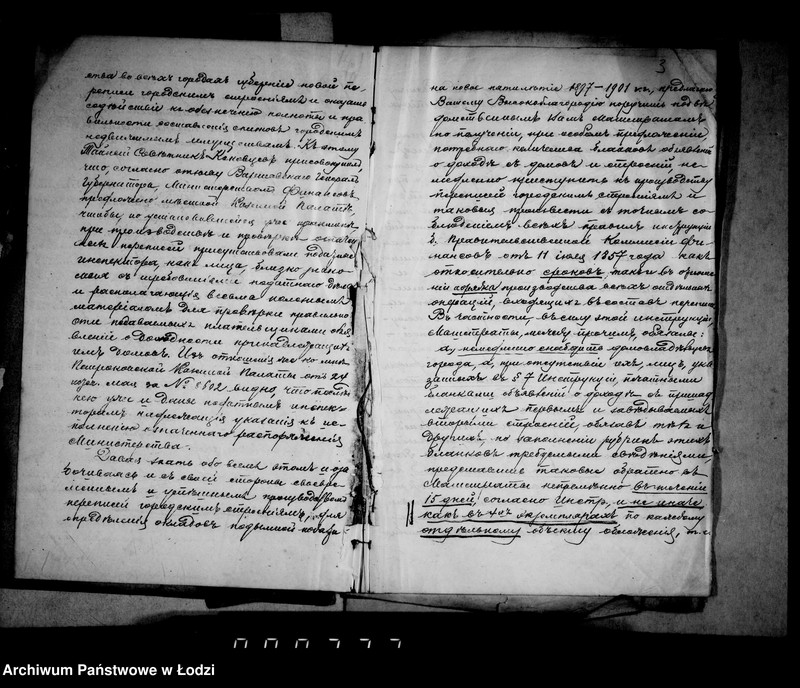 ства во всѣхъ городахъ губерніи новой пе-
реписи городскимъ строеніямъ и оказать
содѣйствіе къ обезпеченію полноты и пра
вильности составленія списковъ городскимъ
недвижимымъ имуществамъ. Къ этому
Тайный Совѣтникъ присовокупилъ,
что, согласно отзыву Варшавскаго Генералъ
Губернатора, Министерствомъ Финансовъ
предложено мѣстной Казенной Палатѣ,
чтобы, по установившейся уже практикѣ,
при производствѣ и провѣркѣ означен
ной переписи присутствовали податные
инспектора, какъ лица, близко знако
мыя съ требованіями податнаго дѣла
и располагающія весьма полезнымъ
матеріаломъ для провѣрки правильно
сти подаваемыхъ плательщиками объ
явленій о доходности принадлежащихъ
имъ домовъ. Изъ отношенія же ко мнѣ
Петроковской Казенной Палаты отъ 24
мая за № 8602 видно, что Палатою
уже и даны податнымъ инспек-
торамъ надлежащія указанія къ ис-
полненію означеннаго распоряженія
Министерства.
Давая знать обо всемъ этомъ и оза
бочиваясь и съ своей стороны своевре
меннымъ и успѣшнымъ производствомъ
переписи городскимъ строеніямъ, для
опредѣленія окладовъ подымной подати
3
на новое пятилѣтіе 1897-1901 гг., предлагаю
Вашему Высокоблагородію поручить подвѣ
домственнымъ Вамъ Магистратамъ
по полученіи, при особомъ предложеніи,
потребнаго количества бланковъ объявленій
о доходѣ съ домовъ и строеній, не
медленно приступить къ производству
переписи городскимъ строеніямъ и
таковую произвести съ точнымъ со
блюденіемъ всѣхъ правилъ инструкціи
б. Правительственной Коммисіи Фи
нансовъ отъ 11 1857 года какъ
относительно сроковъ, такъ и въ отноше
ніи порядка производства всѣхъ отдѣльныхъ
операцій, входящихъ въ составъ переписи.
Въ частности, въ силу этой инструкціи
Магистраты, между прочимъ, обязаны:
а, немедленно снабдить домовладѣльцевъ
города, а, при отсутствіи ихъ, лицъ, ука
занныхъ въ § 7 Инструкціи, печатными
бланками объявленій о доходѣ съ принад
лежащихъ первымъ и завѣдываемыхъ
вторыми строеній, обязавъ тѣхъ и
другихъ, по заполненіи рубрикъ этихъ
бланковъ требуемыми свѣдѣніями
представить таковые обратно въ
Магистраты непремѣнно въ теченіи
15 дней, согласно Инстр., и не иначе
какъ въ экземплярахъ по каждому
отдѣльному объекту обложенія, т. е.
000777
Archiwum Państwowe w Łodzi